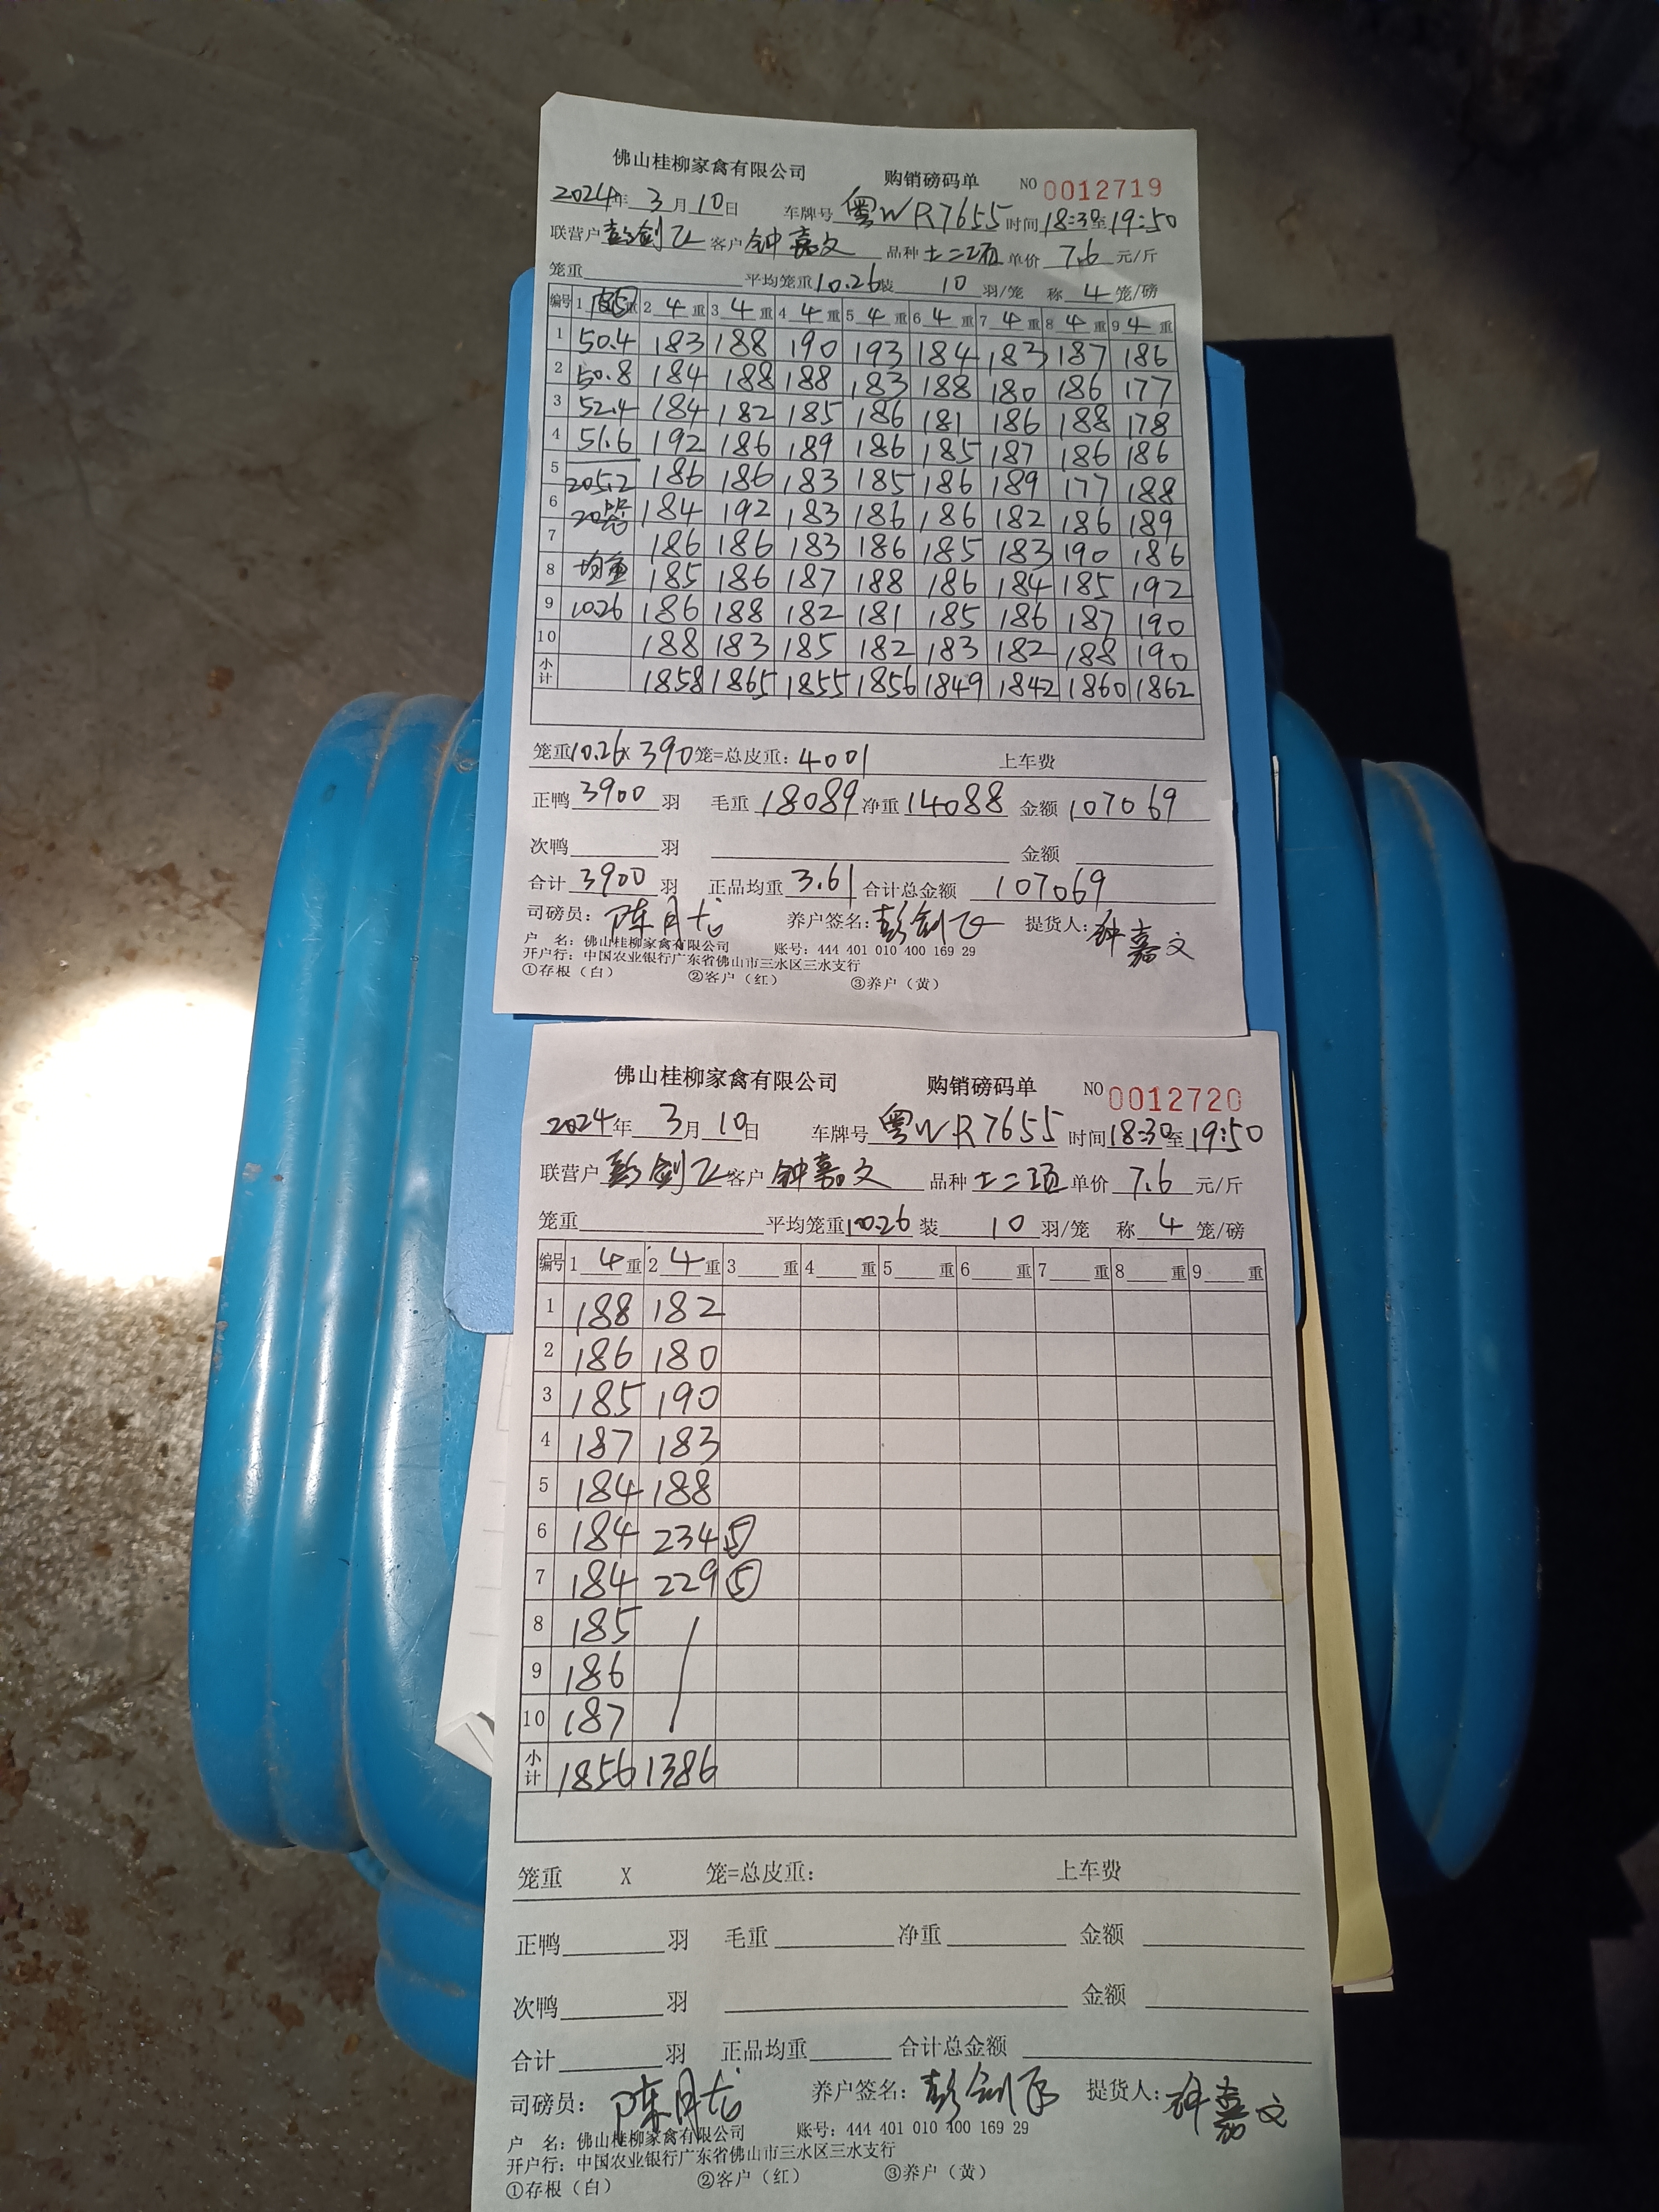 佛山桂柳家禽有限公司 购销磅码单 NO 0012719
2024年 3月 10日 车牌号 粤WR7655 时间 18:30至19:50
联营户 彭剑飞 客户 钟嘉文 品种 土二项 单价 7.6 元/斤
笼重 平均笼重 10.26 装 10 羽/笼 称 4 笼/磅
编号 1 重 2 4 重 3 4 重 4 4 重 5 4 重 6 4 重 7 4 重 8 4 重 9 4 重
1 50.4 183 188 190 193 184 183 187 186
2 50.8 184 188 188 183 188 180 186 177
3 52.4 184 182 185 186 181 186 188 178
4 51.6 192 186 189 186 185 187 186 186
5 205.2 186 186 183 185 186 189 177 188
6 20 184 192 183 186 186 182 186 189
7 186 186 183 186 185 183 190 186
8 均重 185 186 187 188 186 184 185 192
9 10.26 186 188 182 181 185 186 187 190
10 188 183 185 182 183 182 188 190
小计 1858 1865 1855 1856 1849 1842 1860 1862
笼重 10.26 X 390 笼=总皮重: 4001 上车费
正鸭 3900 羽 毛重 18089 净重 14088 金额 107069
次鸭 羽 金额
合计 3900 羽 正品均重 3.61 合计总金额 107069
司磅员: 陈月龙 养户签名: 彭剑飞 提货人: 钟嘉文
户 名: 佛山桂柳家禽有限公司 账号: 444 401 010 400 169 29
开户行: 中国农业银行广东省佛山市三水区三水支行
①存根(白) ②客户(红) ③养户(黄)
佛山桂柳家禽有限公司 购销磅码单 NO 0012720
2024年 3月 10日 车牌号 粤WR7655 时间 18:30至19:50
联营户 彭剑飞 客户 钟嘉文 品种 土二项 单价 7.6 元/斤
笼重 平均笼重 10.26 装 10 羽/笼 称 4 笼/磅
编号 1 4 重 2 4 重 3 重 4 重 5 重 6 重 7 重 8 重 9 重
1 188 182
2 186 180
3 185 190
4 187 183
5 184 188
6 184 234 ⑤
7 184 229 ⑤
8 185
9 186
10 187
小计 1856 1386
笼重 X 笼=总皮重: 上车费
正鸭 羽 毛重 净重 金额
次鸭 羽 金额
合计 羽 正品均重 合计总金额
司磅员: 陈月龙 养户签名: 彭剑飞 提货人: 钟嘉文
户 名: 佛山桂柳家禽有限公司 账号: 444 401 010 400 169 29
开户行: 中国农业银行广东省佛山市三水区三水支行
①存根(白) ②客户(红) ③养户(黄)